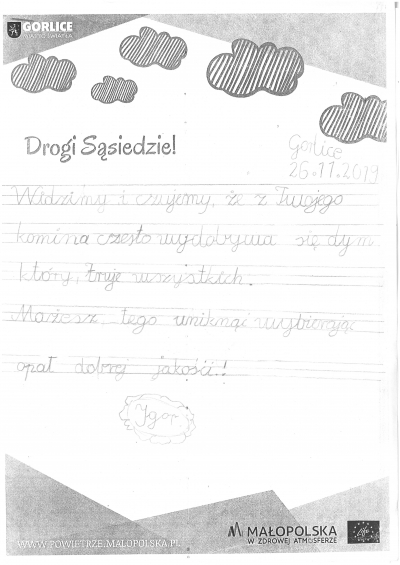 GORLICE
MIASTO ŚWIATŁA
Drogi Sąsiedzie!
Gorlice
26.11.2019
Widzimy i czujemy, że z Twojego
komina często wydobywa się dym
który, truje wszystkich.
Możesz, tego uniknąć wybierając
opał dobrej jakości!
Igor
WWW.POWIETRZE.MALOPOLSKA.PL
MAŁOPOLSKA
W ZDROWEJ ATMOSFERZE